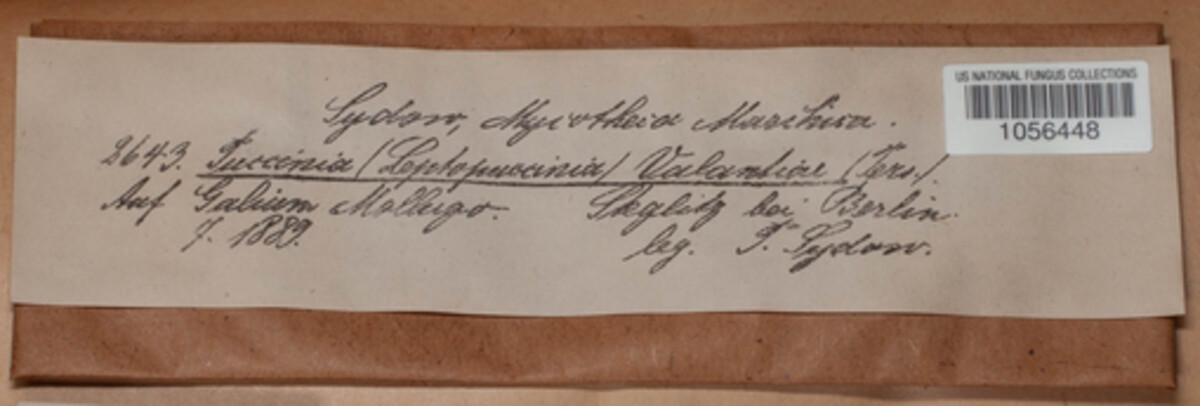 US NATIONAL FUNGUS COLLECTIONS
1056448
Sydow, Mycotheca Marchica.
2643. Puccinia (Leptopuccinia) Valantiae (Pers.)
Auf Galium Mollugo. Steglitz bei Berlin.
7. 1889. leg. P. Sydow.